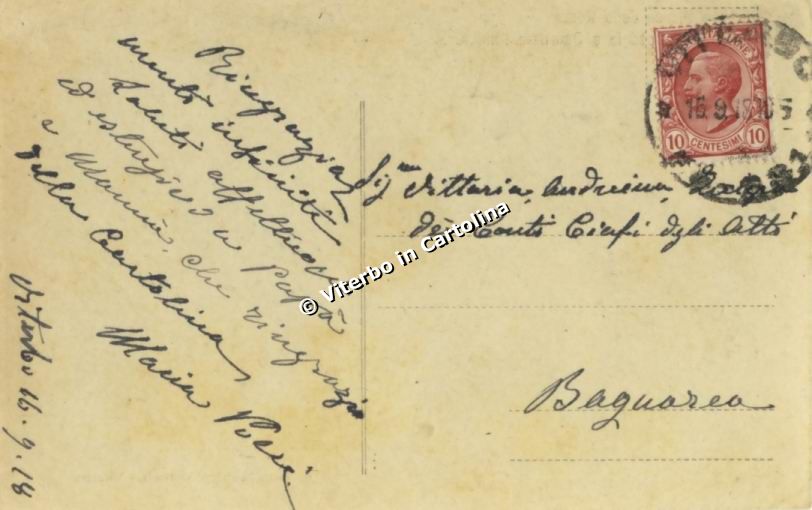 Ringrazia
menti infiniti
saluti affettuosi
ed estensivi a papà
e Mammà, che ringrazio
della Cartolina
Maria
Viterbo 16.9.18
POSTE ITALIANE
10 CENTESIMI 10
16.9.18
Sig.ne Vittoria, Andreina,
dei Conti Cinfi degli Atti
Bagnorea
© Viterbo in Cartolina